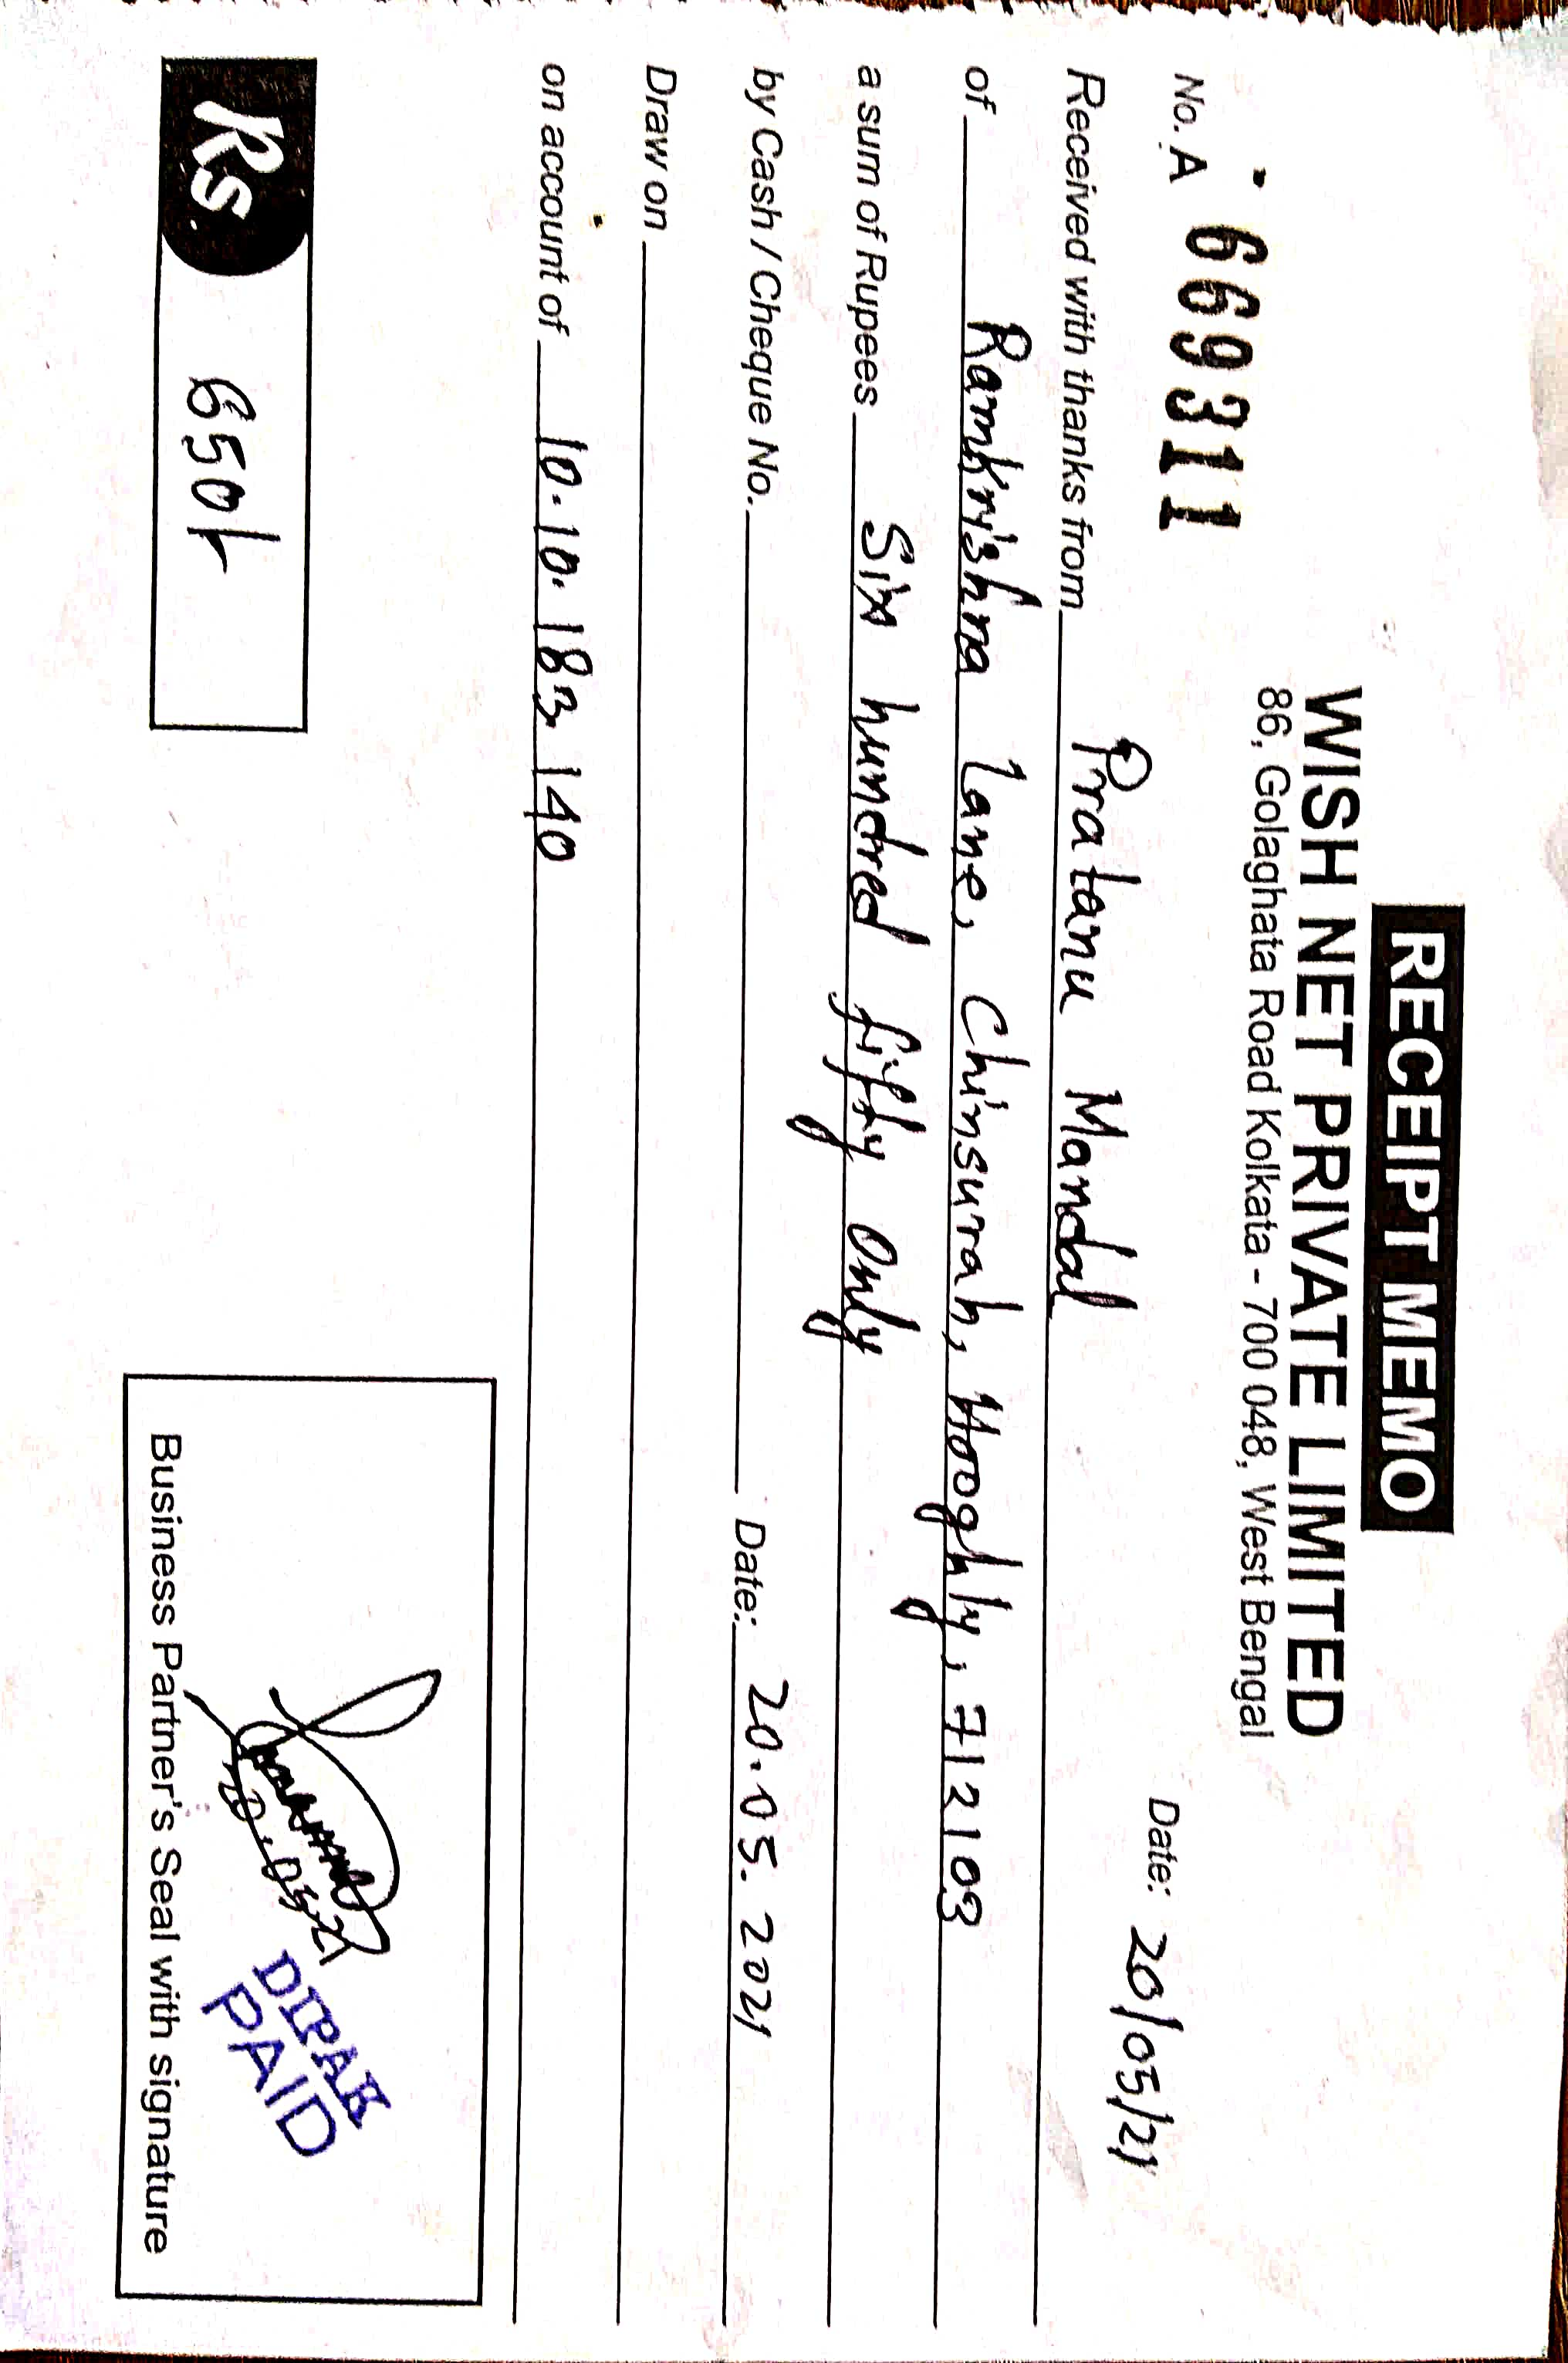 RECEIPT MEMO
WISH NET PRIVATE LIMITED
86, Golaghata Road Kolkata - 700 048, West Bengal
No. A 669311 Date: 20/05/21
Received with thanks from Pratanu Mandal
of Ramkrishna lane, Chinsurah, Hooghly, 712103
a sum of Rupees Six hundred fifty only
by Cash / Cheque No. Date: 20.05.2021
Draw on
on account of 10.10.183.140
Rs. 650/-
20.05.21
DIPAK
PAID
Business Partner's Seal with signature